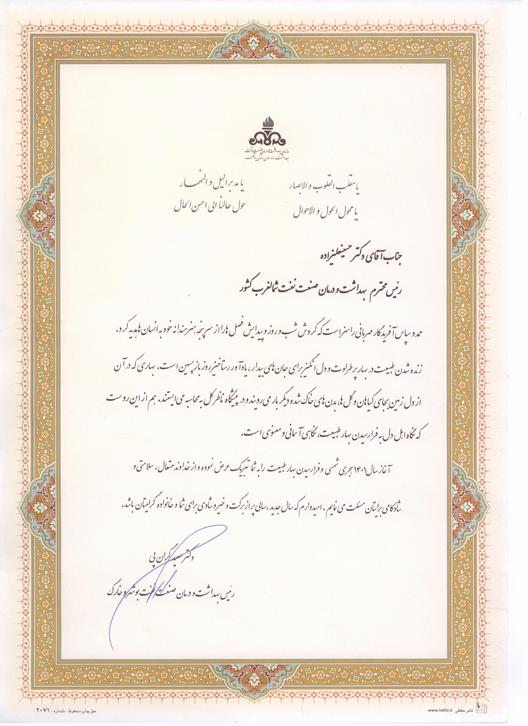 سازمان بهداشت و درمان صنعت نفت
یا مقلب القلوب و الابصار
یا مدبر اللیل و النهار
یا محول الحول و الاحوال
حول حالنا الی احسن الحال
جناب آقای دکتر حسینعلیزاده
رئیس محترم بهداشت و درمان صنعت نفت شمالغرب کشور
حمد و سپاس آفریدگار مهربانی را سزاست که گردش شب و روز و پیدایش فصل ها را از سرپنجه هنرمندانه خود به انسان ها هدیه کرد.
زنده شدن طبیعت در بهار پر طراوت و دل انگیز برای جان های بیدار، یادآور رستاخیز روز بازپسین است. بهاری که در آن
از دل زمین بجای گیاهان و گل ها، بدن های خاک شده دیگر بار می رویند و در پیشگاه ناظر کل به محاسبه می ایستند. هم از این روست
که نگاه اهل دل به فرا رسیدن بهار طبیعت، نگاهی آسمانی و معنوی است.
آغاز سال ۱۴۰۱ هجری شمسی و فرا رسیدن بهار طبیعت را به شما تبریک عرض نموده و از خداوند متعال، سلامتی و
شادکامی برایتان مسئلت می نمایم. امیدوارم که سال جدید، سالی پر از برکت و خیر و شادی برای شما و خانواده گرامیتان باشد.
دکتر سعید گران پی
رئیس بهداشت و درمان صنعت نفت بوشهر و خارک
حق چاپ محفوظ. شماره: ۲۰۷۶
www.hafzi.ir